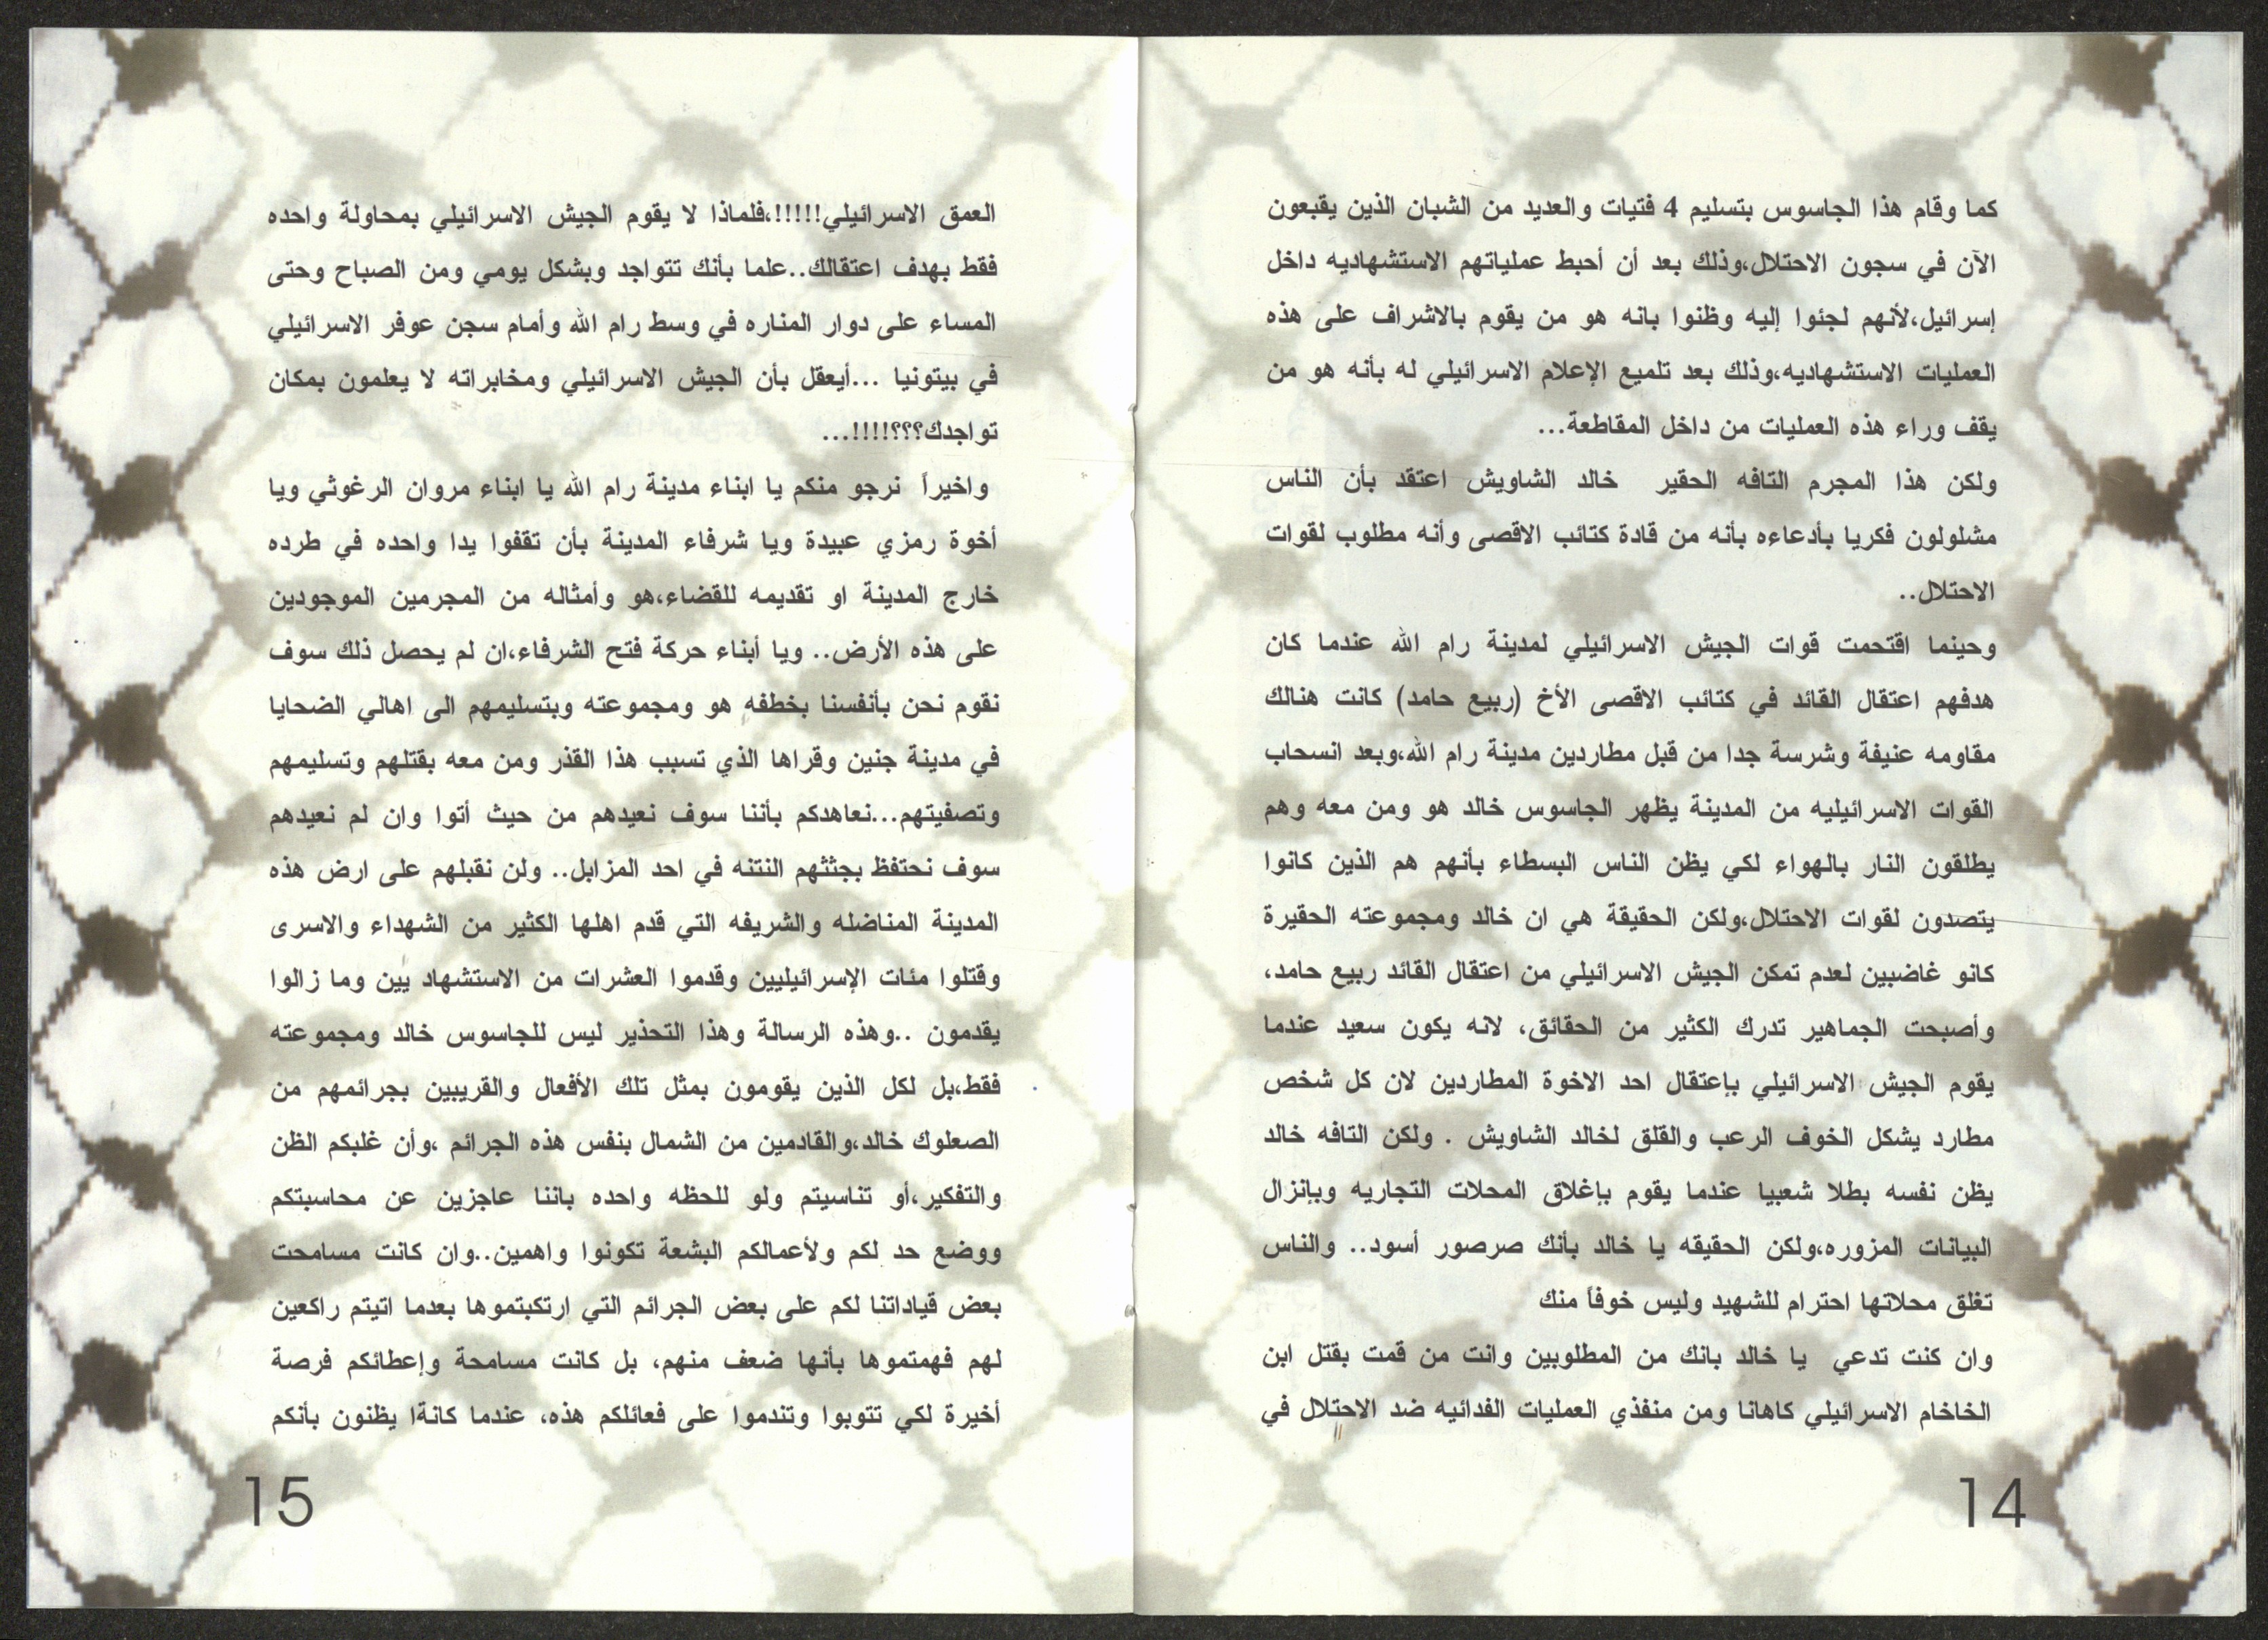 كما وقام هذا الجاسوس بتسليم 4 فتيات والعديد من الشبان الذين يقبعون
الآن في سجون الاحتلال،وذلك بعد أن أحبط عملياتهم الاستشهاديه داخل
إسرائيل،لأنهم لجئوا إليه وظنوا بانه هو من يقوم بالاشراف على هذه
العمليات الاستشهاديه،وذلك بعد تلميع الإعلام الاسرائيلي له بأنه هو من
يقف وراء هذه العمليات من داخل المقاطعة...
ولكن هذا المجرم التافه الحقير خالد الشاويش اعتقد بأن الناس
مشلولون فكريا بأدعاءه بأنه من قادة كتائب الاقصى وأنه مطلوب لقوات
الاحتلال..
وحينما اقتحمت قوات الجيش الاسرائيلي لمدينة رام الله عندما كان
هدفهم اعتقال القائد في كتائب الاقصى الأخ (ربيع حامد) كانت هنالك
مقاومه عنيفة وشرسة جدا من قبل مطاردين مدينة رام الله،وبعد انسحاب
القوات الاسرائيليه من المدينة يظهر الجاسوس خالد هو ومن معه وهم
يطلقون النار بالهواء لكي يظن الناس البسطاء بأنهم هم الذين كانوا
يتصدون لقوات الاحتلال،ولكن الحقيقة هي ان خالد ومجموعته الحقيرة
كانو غاضبين لعدم تمكن الجيش الاسرائيلي من اعتقال القائد ربيع حامد،
وأصبحت الجماهير تدرك الكثير من الحقائق، لانه يكون سعيد عندما
يقوم الجيش الاسرائيلي بإعتقال احد الاخوة المطاردين لان كل شخص
مطارد يشكل الخوف الرعب والقلق لخالد الشاويش . ولكن التافه خالد
يظن نفسه بطلا شعبيا عندما يقوم بإغلاق المحلات التجاريه وبإنزال
البيانات المزوره،ولكن الحقيقه يا خالد بأنك صرصور أسود.. والناس
تغلق محلاتها احترام للشهيد وليس خوفاً منك
وان كنت تدعي يا خالد بانك من المطلوبين وانت من قمت بقتل ابن
الخاخام الاسرائيلي كاهانا ومن منفذي العمليات الفدائيه ضد الاحتلال في
14
العمق الاسرائيلي!!!!!،فلماذا لا يقوم الجيش الاسرائيلي بمحاولة واحده
فقط بهدف اعتقالك..علما بأنك تتواجد وبشكل يومي ومن الصباح وحتى
المساء على دوار المناره في وسط رام الله وأمام سجن عوفر الاسرائيلي
في بيتونيا ...أيعقل بأن الجيش الاسرائيلي ومخابراته لا يعلمون بمكان
تواجدك؟؟؟!!!!...
واخيراً نرجو منكم يا ابناء مدينة رام الله يا ابناء مروان الرغوثي ويا
أخوة رمزي عبيدة ويا شرفاء المدينة بأن تقفوا يدا واحده في طرده
خارج المدينة او تقديمه للقضاء،هو وأمثاله من المجرمين الموجودين
على هذه الأرض.. ويا أبناء حركة فتح الشرفاء،ان لم يحصل ذلك سوف
نقوم نحن بأنفسنا بخطفه هو ومجموعته وبتسليمهم الى اهالي الضحايا
في مدينة جنين وقراها الذي تسبب هذا القذر ومن معه بقتلهم وتسليمهم
وتصفيتهم...نعاهدكم بأننا سوف نعيدهم من حيث أتوا وان لم نعيدهم
سوف نحتفظ بجثثهم النتنه في احد المزابل.. ولن نقبلهم على ارض هذه
المدينة المناضله والشريفه التي قدم اهلها الكثير من الشهداء والاسرى
وقتلوا مئات الإسرائيليين وقدموا العشرات من الاستشهاد يين وما زالوا
يقدمون ..وهذه الرسالة وهذا التحذير ليس للجاسوس خالد ومجموعته
فقط،بل لكل الذين يقومون بمثل تلك الأفعال والقريبين بجرائمهم من
الصعلوك خالد،والقادمين من الشمال بنفس هذه الجرائم ،وأن غلبكم الظن
والتفكير،أو تناسيتم ولو للحظه واحده باننا عاجزين عن محاسبتكم
ووضع حد لكم ولأعمالكم البشعة تكونوا واهمين..وان كانت مسامحت
بعض قياداتنا لكم على بعض الجرائم التي ارتكبتموها بعدما اتيتم راكعين
لهم فهمتموها بأنها ضعف منهم، بل كانت مسامحة وإعطائكم فرصة
أخيرة لكي تتوبوا وتندموا على فعائلكم هذه، عندما كانةا يظنون بأنكم
15